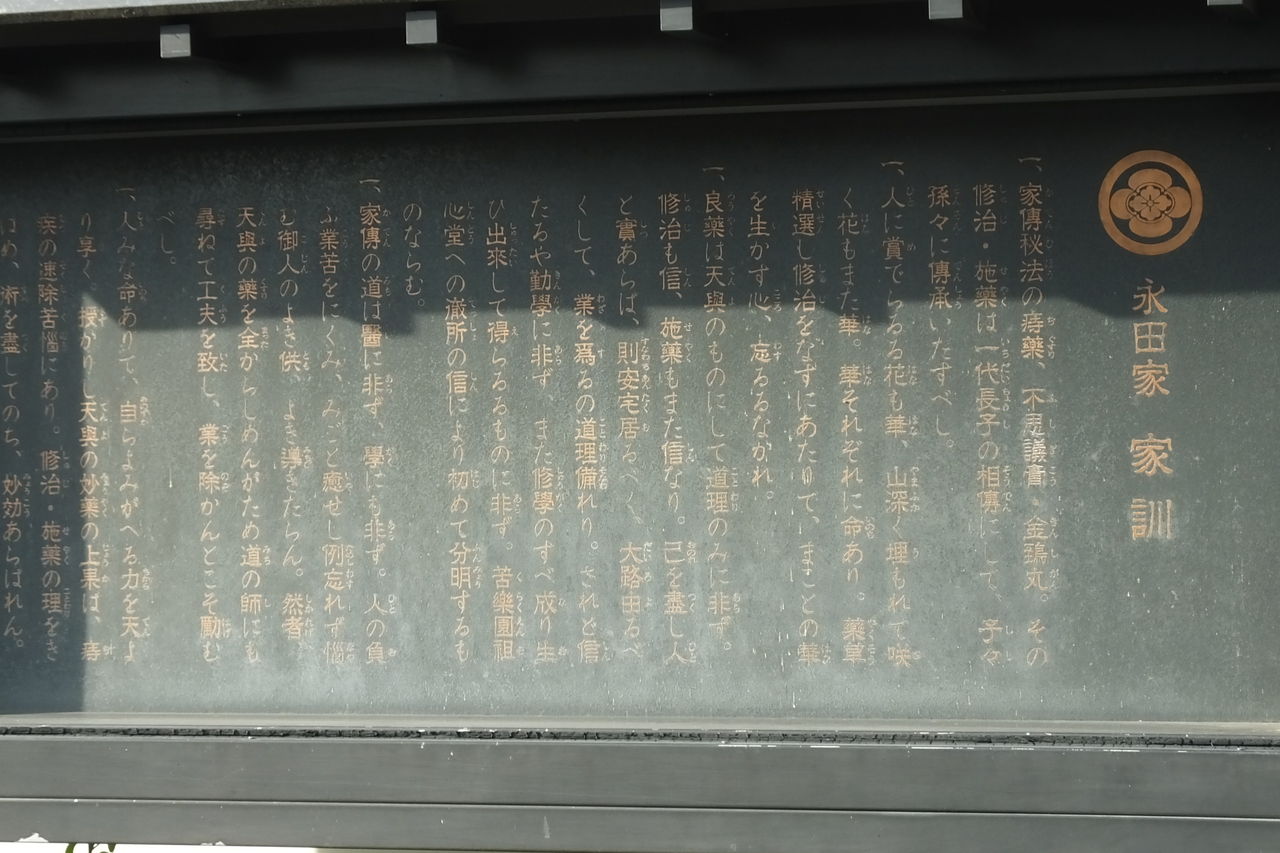 永田家 家訓
一、家傳秘法の痔藥、不思議膏、金鵄丸。その
修治・施藥は一代長子の相傳にして、子々
孫々に傳承いたすべし。
一、人に賞でらるる花も華、山深く埋もれて咲
く花もまた華。華それぞれに命あり。藥草
精選し修治をなすにあたりて、まことの華
を生かす心、忘るるなかれ。
一、良藥は天與のものにして道理のみに非ず。
修治も信、施藥もまた信なり。己を盡し人
と實あらば、則安宅居るべく、大路由るべ
くして、業を爲るの道理備れり。されど信
たるや勤學に非ず、また修學のすべ成り生
ひ出來して得らるるものに非ず。苦樂園祖
心堂への澈所の信により初めて分明するも
のならむ。
一、家傳の道は醫に非ず、學にも非ず。人の負
ふ業苦をにくみ、みこ癒せし例忘れず惱
む御人のよき供、よき導きたらん。然者、
天與の藥を全からしめんがため道の師にも
尋ねて工夫を致し、業を除かんとこそ勵む
べし。
一、人みな命ありて、自らよみがへる力を天よ
り享く。授かりし天與の妙藥の上果は、痔
疾の速除苦惱にあり。修治・施藥の理をき
はめ、術を盡してのち、妙効あらばれん。